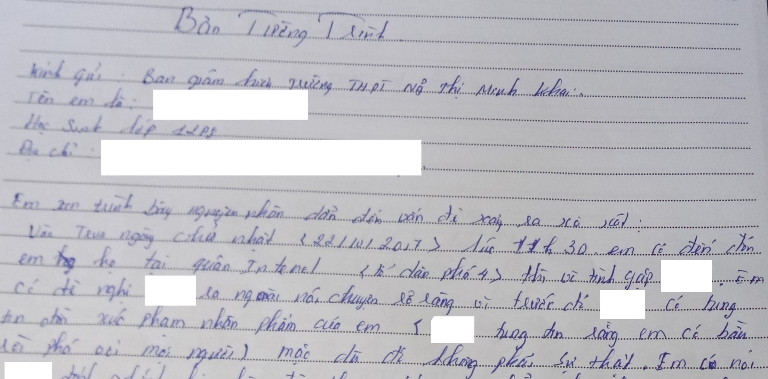 Bản Tường Trình
Kính gửi : Ban giám hiệu trường THPT Ng Thị Minh Khai.
Tên em là:
Học Sinh lớp 12P8
Địa chỉ :
Em xin trình bày nguyên nhân dẫn đến vấn đề xảy ra xô xát :
Vào Trưa ngày chủ nhật <22/10/2017> lúc 11h30 em có đến đón
em họ tại quán Internet <tổ dân phố 4> thì vô tình gặp . Em
có đề nghị ra ngoài nói chuyện rõ ràng vì trước đó có tung
tin đồn xúc phạm nhân phẩm của em ( tung tin rằng em có bầu
rồi phá với mọi người) mặc dù đó không phải sự thật. Em có nói